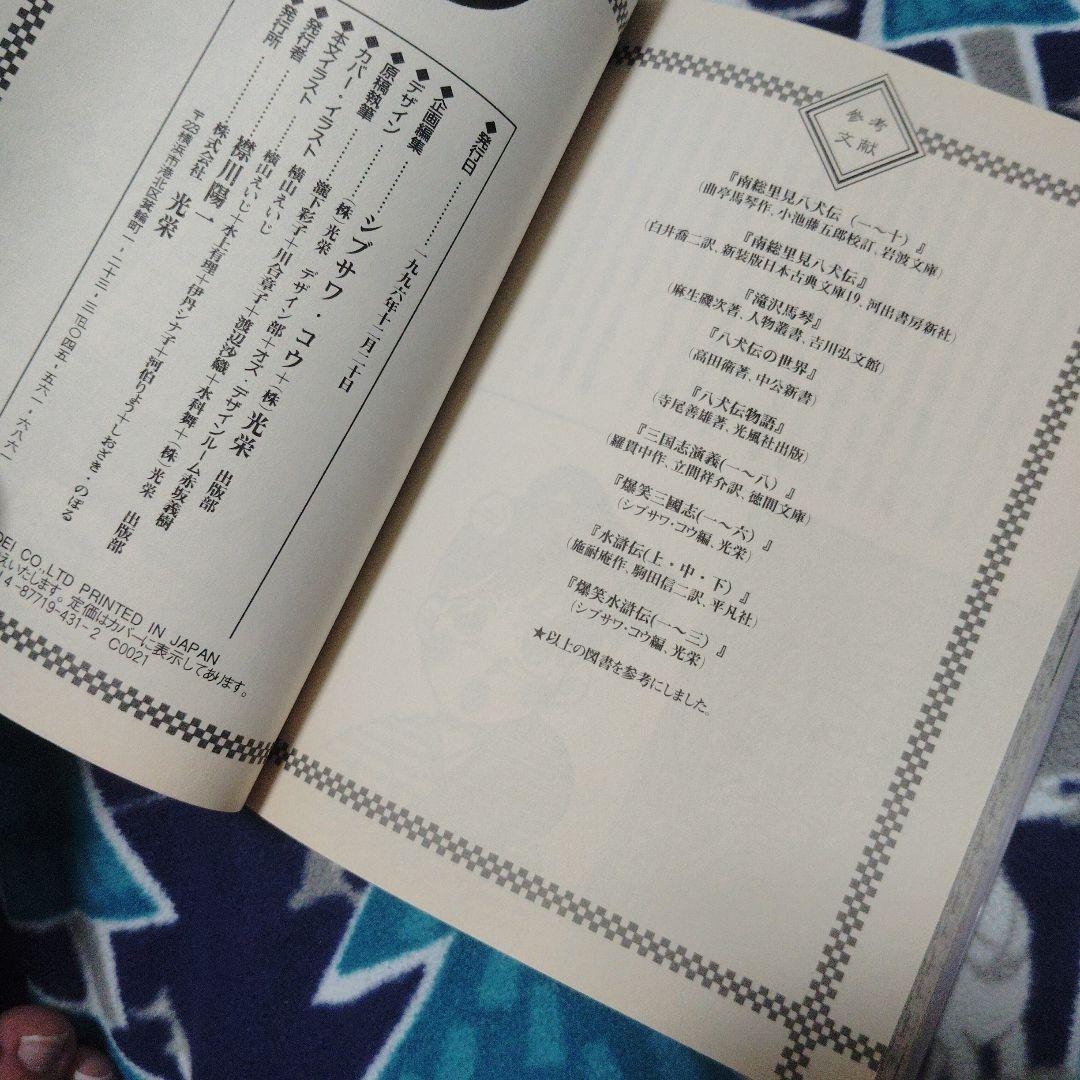 参考
文献
『南総里見八犬伝（一〜十）』
(曲亭馬琴作、小池藤五郎校訂、岩波文庫)
『南総里見八犬伝』
(白井喬二訳、新装版日本古典文庫19、河出書房新社)
『滝沢馬琴』
(麻生磯次著、人物叢書、吉川弘文館)
『八犬伝の世界』
(高田衛著、中公新書)
『八犬伝物語』
(寺尾善雄著、光風社出版)
『三国志演義(一〜八)』
(羅貫中作、立間祥介訳、徳間文庫)
『爆笑三國志(一〜六)』
(シブサワ・コウ編、光栄)
『水滸伝(上・中・下)』
(施耐庵作、駒田信二訳、平凡社)
『爆笑水滸伝(一〜三)』
(シブサワ・コウ編、光栄)
★以上の図書を参考にしました。
◆発行日…………一九九六年十二月二十日
◆企画編集………シブサワ・コウ＋(株)光栄 出版部
◆デザイン………(株)光栄 デザイン部＋オズ・デザインルーム赤坂義樹
◆原稿執筆………瀧下彩子＋川合章子＋渡辺沙織＋水科舞＋(株)光栄 出版部
◆カバー・イラスト…横山えいじ
◆本文イラスト……横山えいじ＋水上有理＋伊丹シナ子＋河伯りょう＋しおざき・のぼる
◆発行者…………襟川陽一
◆発行所…………株式会社 光栄
〒223 横浜市港北区箕輪町一-二十三-三 ☎〇四五-五六一-六八六一
OEI CO.,LTD PRINTED IN JAPAN
えいたします。定価はカバーに表示してあります。
4-87719-431-2 C0021